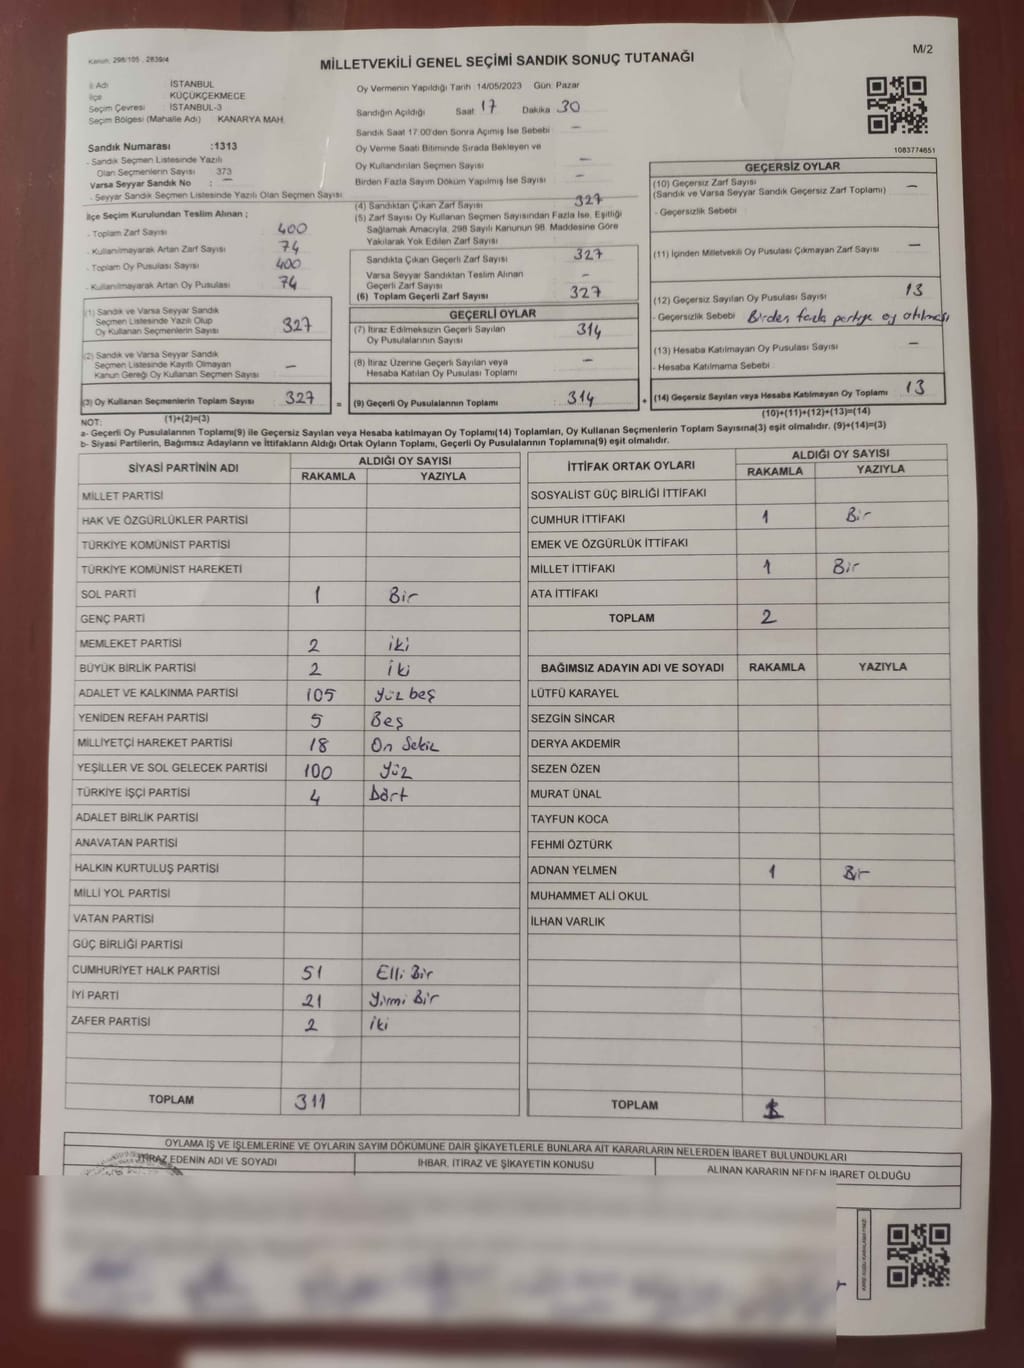 Kanun: 298/105 , 2839/4
M/2
MİLLETVEKİLİ GENEL SEÇİMİ SANDIK SONUÇ TUTANAĞI
İl Adı : İSTANBUL
İlçe : KÜÇÜKÇEKMECE
Seçim Çevresi : İSTANBUL-3
Seçim Bölgesi (Mahalle Adı) KANARYA MAH.
Sandık Numarası :1313
- Sandık Seçmen Listesinde Yazılı
Olan Seçmenlerin Sayısı 373
Varsa Seyyar Sandık No : —
- Seyyar Sandık Seçmen Listesinde Yazılı Olan Seçmen Sayısı
İlçe Seçim Kurulundan Teslim Alınan ;
- Toplam Zarf Sayısı 400
- Kullanılmayarak Artan Zarf Sayısı 74
- Toplam Oy Pusulası Sayısı 400
- Kullanılmayarak Artan Oy Pusulası 74
(1) Sandık ve Varsa Seyyar Sandık
Seçmen Listesinde Yazılı Olup
Oy Kullanan Seçmenlerin Sayısı 327
(2) Sandık ve Varsa Seyyar Sandık
Seçmen Listesinde Kayıtlı Olmayan
Kanun Gereği Oy Kullanan Seçmen Sayısı —
(3) Oy Kullanan Seçmenlerin Toplam Sayısı 327 =
(1)+(2)=(3)
Oy Vermenin Yapıldığı Tarih :14/05/2023 Gün: Pazar
Sandığın Açıldığı Saat 17 Dakika 30
Sandık Saat 17:00'den Sonra Açımış İse Sebebi —
Oy Verme Saati Bitiminde Sırada Bekleyen ve
Oy Kullandırılan Seçmen Sayısı —
Birden Fazla Sayım Döküm Yapılmış İse Sayısı —
(4) Sandıktan Çıkan Zarf Sayısı 327
(5) Zarf Sayısı Oy Kullanan Seçmen Sayısından Fazla İse, Eşitliği
Sağlamak Amacıyla, 298 Sayılı Kanunun 98. Maddesine Göre
Yakılarak Yok Edilen Zarf Sayısı
Sandıkta Çıkan Geçerli Zarf Sayısı 327
Varsa Seyyar Sandıktan Teslim Alınan
Geçerli Zarf Sayısı —
(6) Toplam Geçerli Zarf Sayısı 327
GEÇERLİ OYLAR
(7) İtiraz Edilmeksizin Geçerli Sayılan
Oy Pusulalarının Sayısı 314
(8) İtiraz Üzerine Geçerli Sayılan veya
Hesaba Katılan Oy Pusulası Toplamı —
(9) Geçerli Oy Pusulalarının Toplamı 314 +
1083774651
GEÇERSİZ OYLAR
(10) Geçersiz Zarf Sayısı
(Sandık ve Varsa Seyyar Sandık Geçersiz Zarf Toplamı) —
- Geçersizlik Sebebi
(11) İçinden Milletvekili Oy Pusulası Çıkmayan Zarf Sayısı —
(12) Geçersiz Sayılan Oy Pusulası Sayısı 13
- Geçersizlik Sebebi Birden fazla partiye oy atılması
(13) Hesaba Katılmayan Oy Pusulası Sayısı —
- Hesaba Katılmama Sebebi
(14) Geçersiz Sayılan veya Hesaba Katılmayan Oy Toplamı 13
(10)+(11)+(12)+(13)=(14)
NOT:
a- Geçerli Oy Pusulalarının Toplamı(9) ile Geçersiz Sayılan veya Hesaba katılmayan Oy Toplamı(14) Toplamları, Oy Kullanan Seçmenlerin Toplam Sayısına(3) eşit olmalıdır. (9)+(14)=(3)
b- Siyasi Partilerin, Bağımsız Adayların ve İttifakların Aldığı Ortak Oyların Toplamı, Geçerli Oy Pusulalarının Toplamına(9) eşit olmalıdır.
SİYASİ PARTİNİN ADI ALDIĞI OY SAYISI
RAKAMLA YAZIYLA
MİLLET PARTİSİ
HAK VE ÖZGÜRLÜKLER PARTİSİ
TÜRKİYE KOMÜNİST PARTİSİ
TÜRKİYE KOMÜNİST HAREKETİ
SOL PARTİ 1 Bir
GENÇ PARTİ
MEMLEKET PARTİSİ 2 iki
BÜYÜK BİRLİK PARTİSİ 2 iki
ADALET VE KALKINMA PARTİSİ 105 yüz beş
YENİDEN REFAH PARTİSİ 5 Beş
MİLLİYETÇİ HAREKET PARTİSİ 18 On Sekiz
YEŞİLLER VE SOL GELECEK PARTİSİ 100 yüz
TÜRKİYE İŞÇİ PARTİSİ 4 Dört
ADALET BİRLİK PARTİSİ
ANAVATAN PARTİSİ
HALKIN KURTULUŞ PARTİSİ
MİLLİ YOL PARTİSİ
VATAN PARTİSİ
GÜÇ BİRLİĞİ PARTİSİ
CUMHURİYET HALK PARTİSİ 51 Elli Bir
İYİ PARTİ 21 Yirmi Bir
ZAFER PARTİSİ 2 iki
TOPLAM 311
İTTİFAK ORTAK OYLARI ALDIĞI OY SAYISI
RAKAMLA YAZIYLA
SOSYALİST GÜÇ BİRLİĞİ İTTİFAKI
CUMHUR İTTİFAKI 1 Bir
EMEK VE ÖZGÜRLÜK İTTİFAKI
MİLLET İTTİFAKI 1 Bir
ATA İTTİFAKI
TOPLAM 2
BAĞIMSIZ ADAYIN ADI VE SOYADI RAKAMLA YAZIYLA
LÜTFÜ KARAYEL
SEZGİN SİNCAR
DERYA AKDEMİR
SEZEN ÖZEN
MURAT ÜNAL
TAYFUN KOCA
FEHMİ ÖZTÜRK
ADNAN YELMEN 1 Bir
MUHAMMET ALİ OKUL
İLHAN VARLIK
TOPLAM 1
OYLAMA İŞ VE İŞLEMLERİNE VE OYLARIN SAYIM DÖKÜMÜNE DAİR ŞİKAYETLERLE BUNLARA AİT KARARLARIN NELERDEN İBARET BULUNDUKLARI
İTİRAZ EDENİN ADI VE SOYADI İHBAR, İTİRAZ VE ŞİKAYETİN KONUSU ALINAN KARARIN NEDEN İBARET OLDUĞU